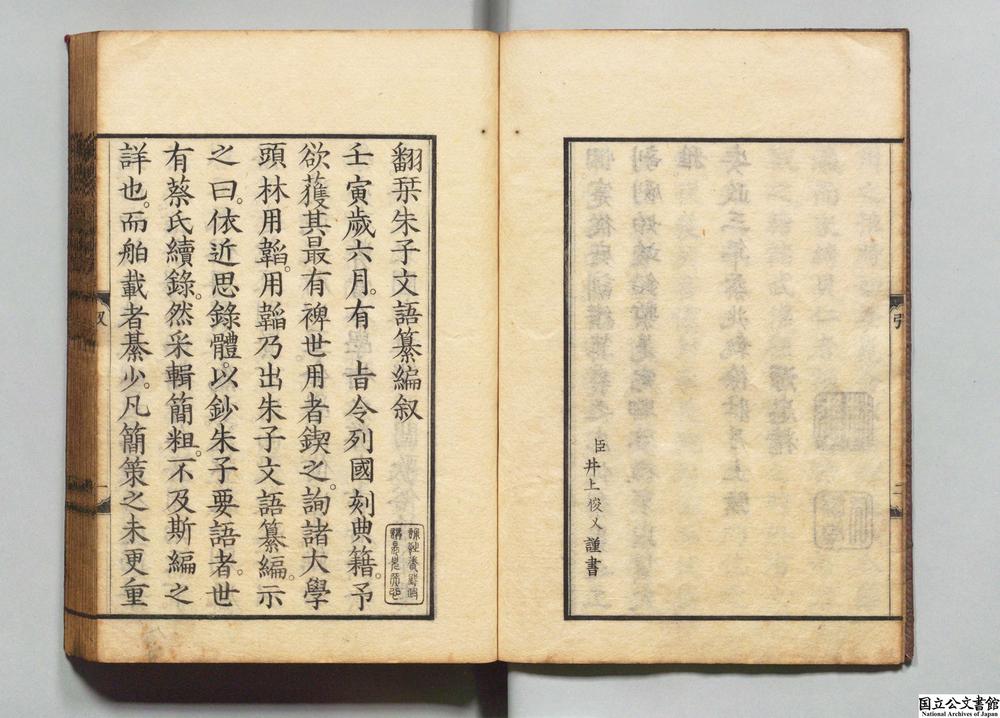 臣井上俊乂謹書
引
翻栞朱子文語纂編叙
壬寅歳六月。有 旨令列國刻典籍。予
欲獲其最有裨世用者鍥之。詢諸大學
頭林用韜。用韜乃出朱子文語纂編。示
之曰。依近思錄體。以鈔朱子要語者。世
有蔡氏續錄。然采輯簡粗。不及斯編之
詳也。而舶載者綦少。凡簡策之未更重
叙
一
国立公文書館
National Archives of Japan